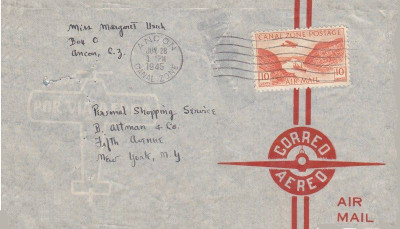 Miss Margaret
Box O
Ancon, C.Z.
ANCON
JUN 28
PM
1945
CANAL ZONE
CANAL ZONE POSTAGE
10 10
AIR MAIL
Personal Shopping Service
B. Altman & Co.
Fifth Avenue
New York, N.Y
CORREO
AEREO
AIR
MAIL